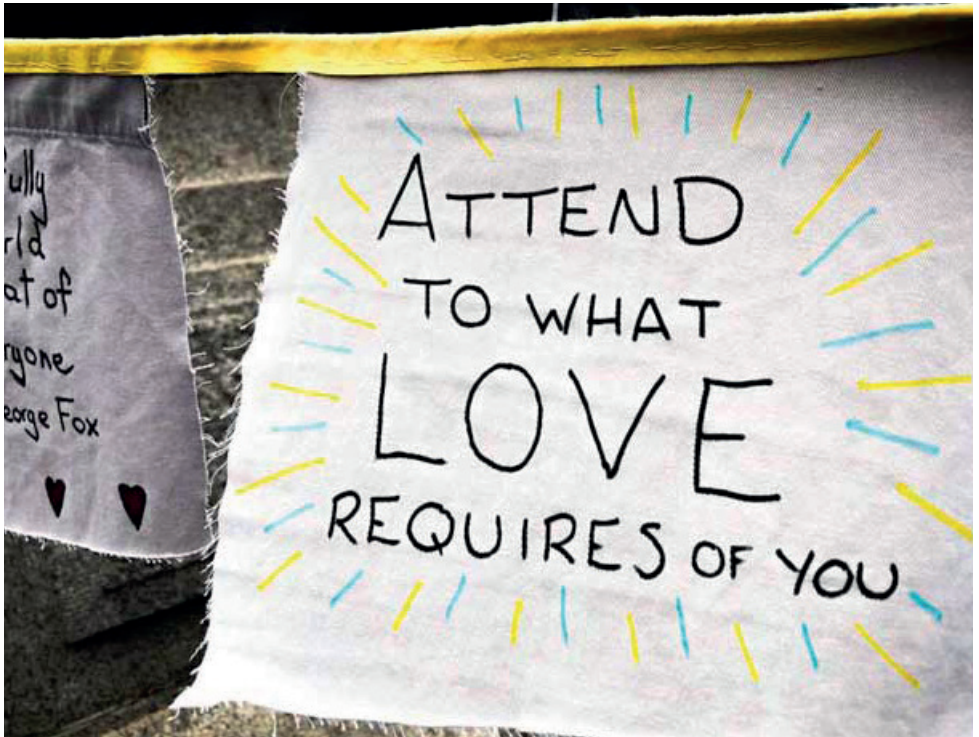 fully
rld
at of
ryone
eorge Fox
ATTEND
TO WHAT
LOVE
REQUIRES OF YOU